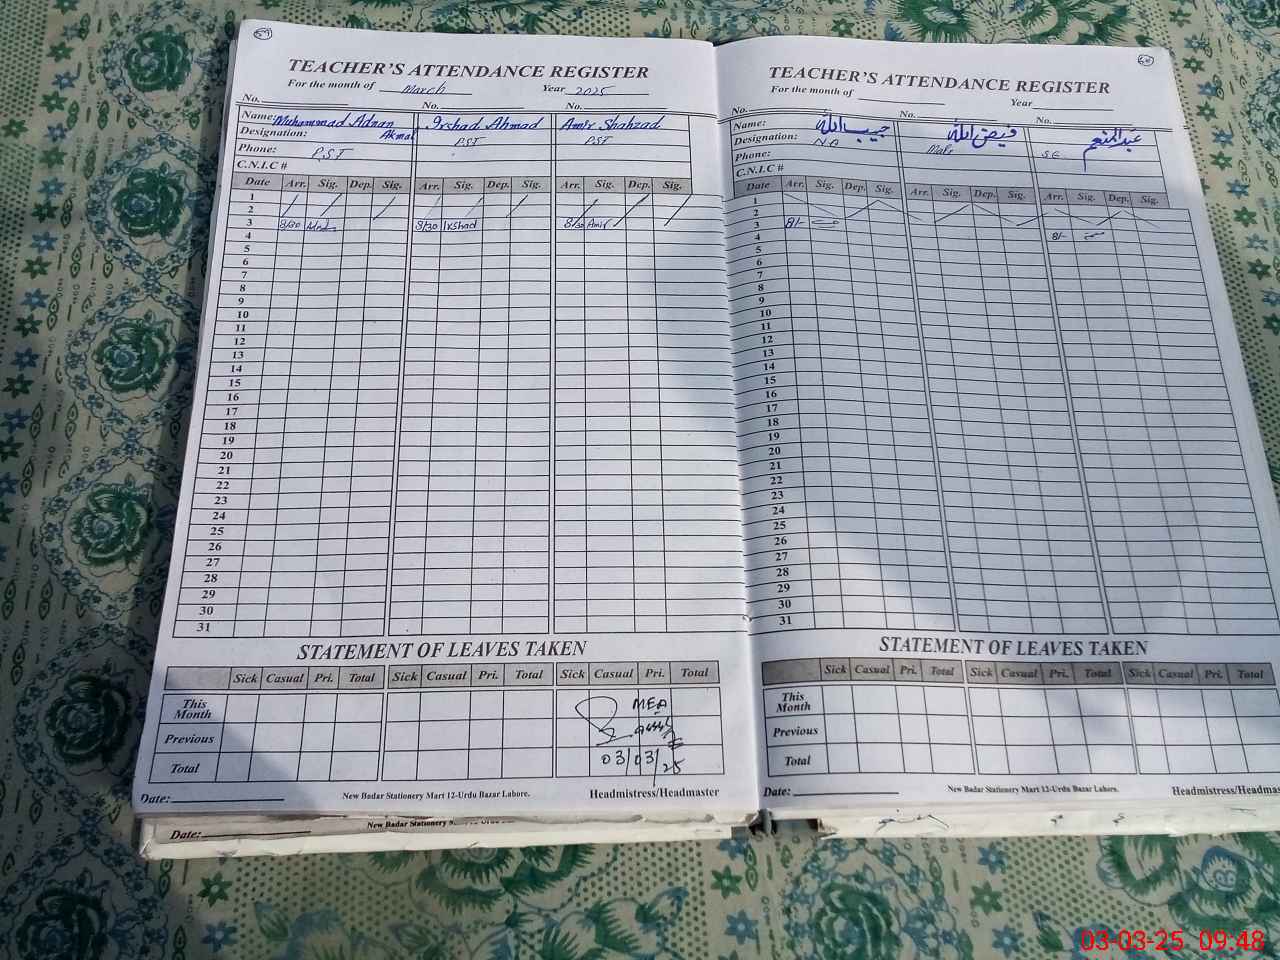 59
TEACHER'S ATTENDANCE REGISTER
For the month of March Year 2025
No. No. No.
Name: Muhammad Adnan Akmal Irshad Ahmad Amir Shahzad
Designation: PST PST PST
Phone:
C.N.I.C #
Date Arr. Sig. Dep. Sig. Arr. Sig. Dep. Sig. Arr. Sig. Dep. Sig.
1
2
3 8/30 8/30 Irshad 8/30 Amir
4
5
6
7
8
9
10
11
12
13
14
15
16
17
18
19
20
21
22
23
24
25
26
27
28
29
30
31
STATEMENT OF LEAVES TAKEN
Sick Casual Pri. Total Sick Casual Pri. Total Sick Casual Pri. Total
This Month
Previous
Total
MEA
03/03/25
Date: New Badar Stationery Mart 12-Urdu Bazar Lahore. Headmistress/Headmaster
Date: New Badar Stationery
60
TEACHER'S ATTENDANCE REGISTER
For the month of Year
No. No. No.
Name: حبیب اللہ فیض اللہ عبدالمنعم
Designation: N.Q
Phone:
C.N.I.C #
Date Arr. Sig. Dep. Sig. Arr. Sig. Dep. Sig. Arr. Sig. Dep. Sig.
1
2
3 8/-
4 8/-
5
6
7
8
9
10
11
12
13
14
15
16
17
18
19
20
21
22
23
24
25
26
27
28
29
30
31
STATEMENT OF LEAVES TAKEN
Sick Casual Pri. Total Sick Casual Pri. Total Sick Casual Pri. Total
This Month
Previous
Total
Date: New Badar Stationery Mart 12-Urdu Bazar Lahore. Headmistress/Headmas
03-03-25 09:48